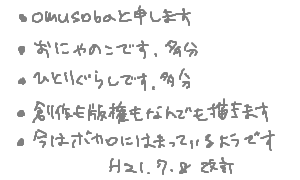 ・omusobaと申します
・おにゃのこです、多分
・ひとりぐらしです、多分
・創作も版権もなんでも描きます
・今はボカロにはまっているようです
H21.7.8 改訂